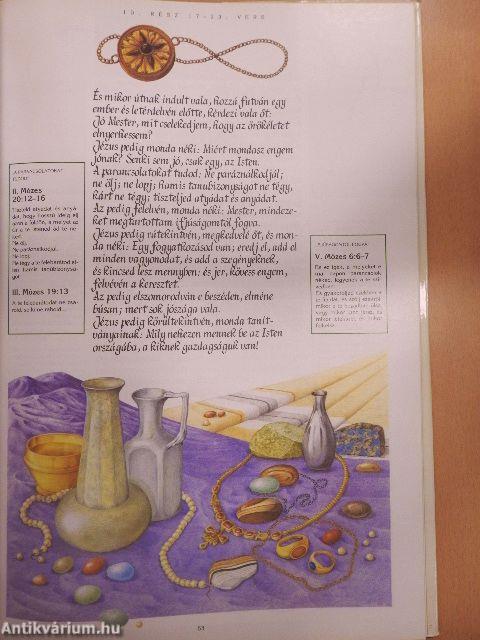 10. RÉSZ 17-23. VERS
És mikor útnak indult vala, hozzá futván egy
ember és letérdelvén előtte, kérdezi vala őt:
Jó Mester, mit cselekedjem, hogy az örökéletet
elnyerhessem?
Jézus pedig monda néki: Miért mondasz engem
jónak? Senki sem jó, csak egy, az Isten.
A parancsolatokat tudod: Ne paráználkodjál;
ne ölj; ne lopj; hamis tanubizonyságot ne tégy,
kárt ne tégy; tiszteljed atyádat és anyádat.
Az pedig felelvén, monda néki: Mester, mindeze-
ket megtartottam ifjúságomtól fogva.
Jézus pedig rátekintvén, megkedvelé őt, és mon-
da néki: Egy fogyatkozásod van; eredj el, add el
minden vagyonodat, és add a szegényeknek,
és kincsed lesz mennyben; és jer, kövess engem,
felvévén a keresztet.
Az pedig elszomorodván e beszéden, elméne
búsan; mert sok jószága vala.
Jézus pedig körültekintvén, monda tanít-
ványainak: Mily nehezen mennek be az Isten
országába, a kiknek gazdagságuk van!
II. Mózes
20:12-16
Tiszteld atyádat és anyá-
dat, hogy hosszú ideig élj
Ne ölj.
Ne paráználkodjál.
Ne lopj.
III. Mózes 19:13
V. Mózes 6:6-7
53
Antikvárium.hu